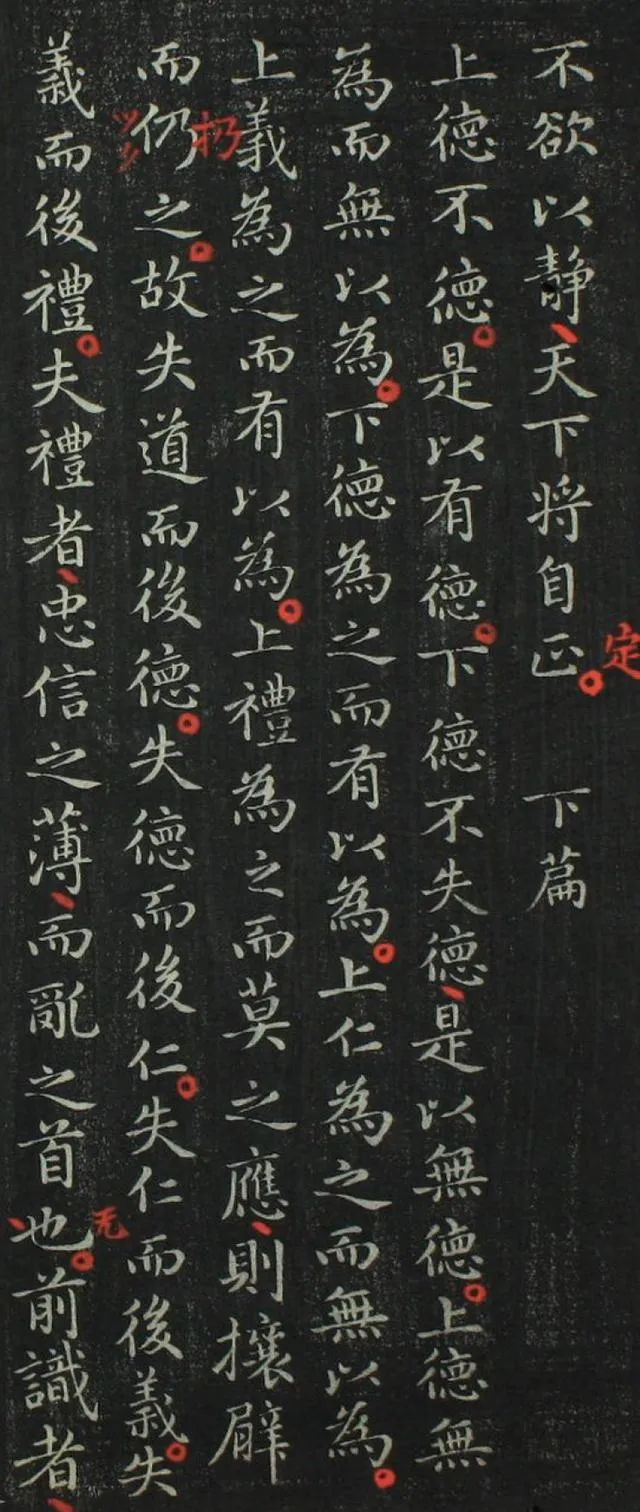 不欲以静、天下将自正。 下篇
定
上德不德。是以有德。下德不失德、是以無德。上德無
為而無以為。下德為之而有以為。上仁為之而無以為。
上義為之而有以為。上禮為之而莫之應、則攘臂
扔
而仍之。故失道而後德。失德而後仁。失仁而後義。失
无
義而後禮。夫禮者、忠信之薄、而亂之首、也。前識者、